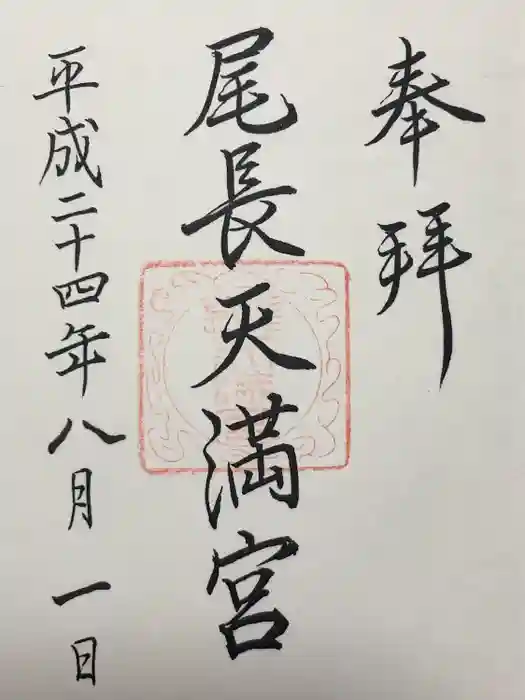 奉拝
尾長天満宮
平成二十四年八月一日